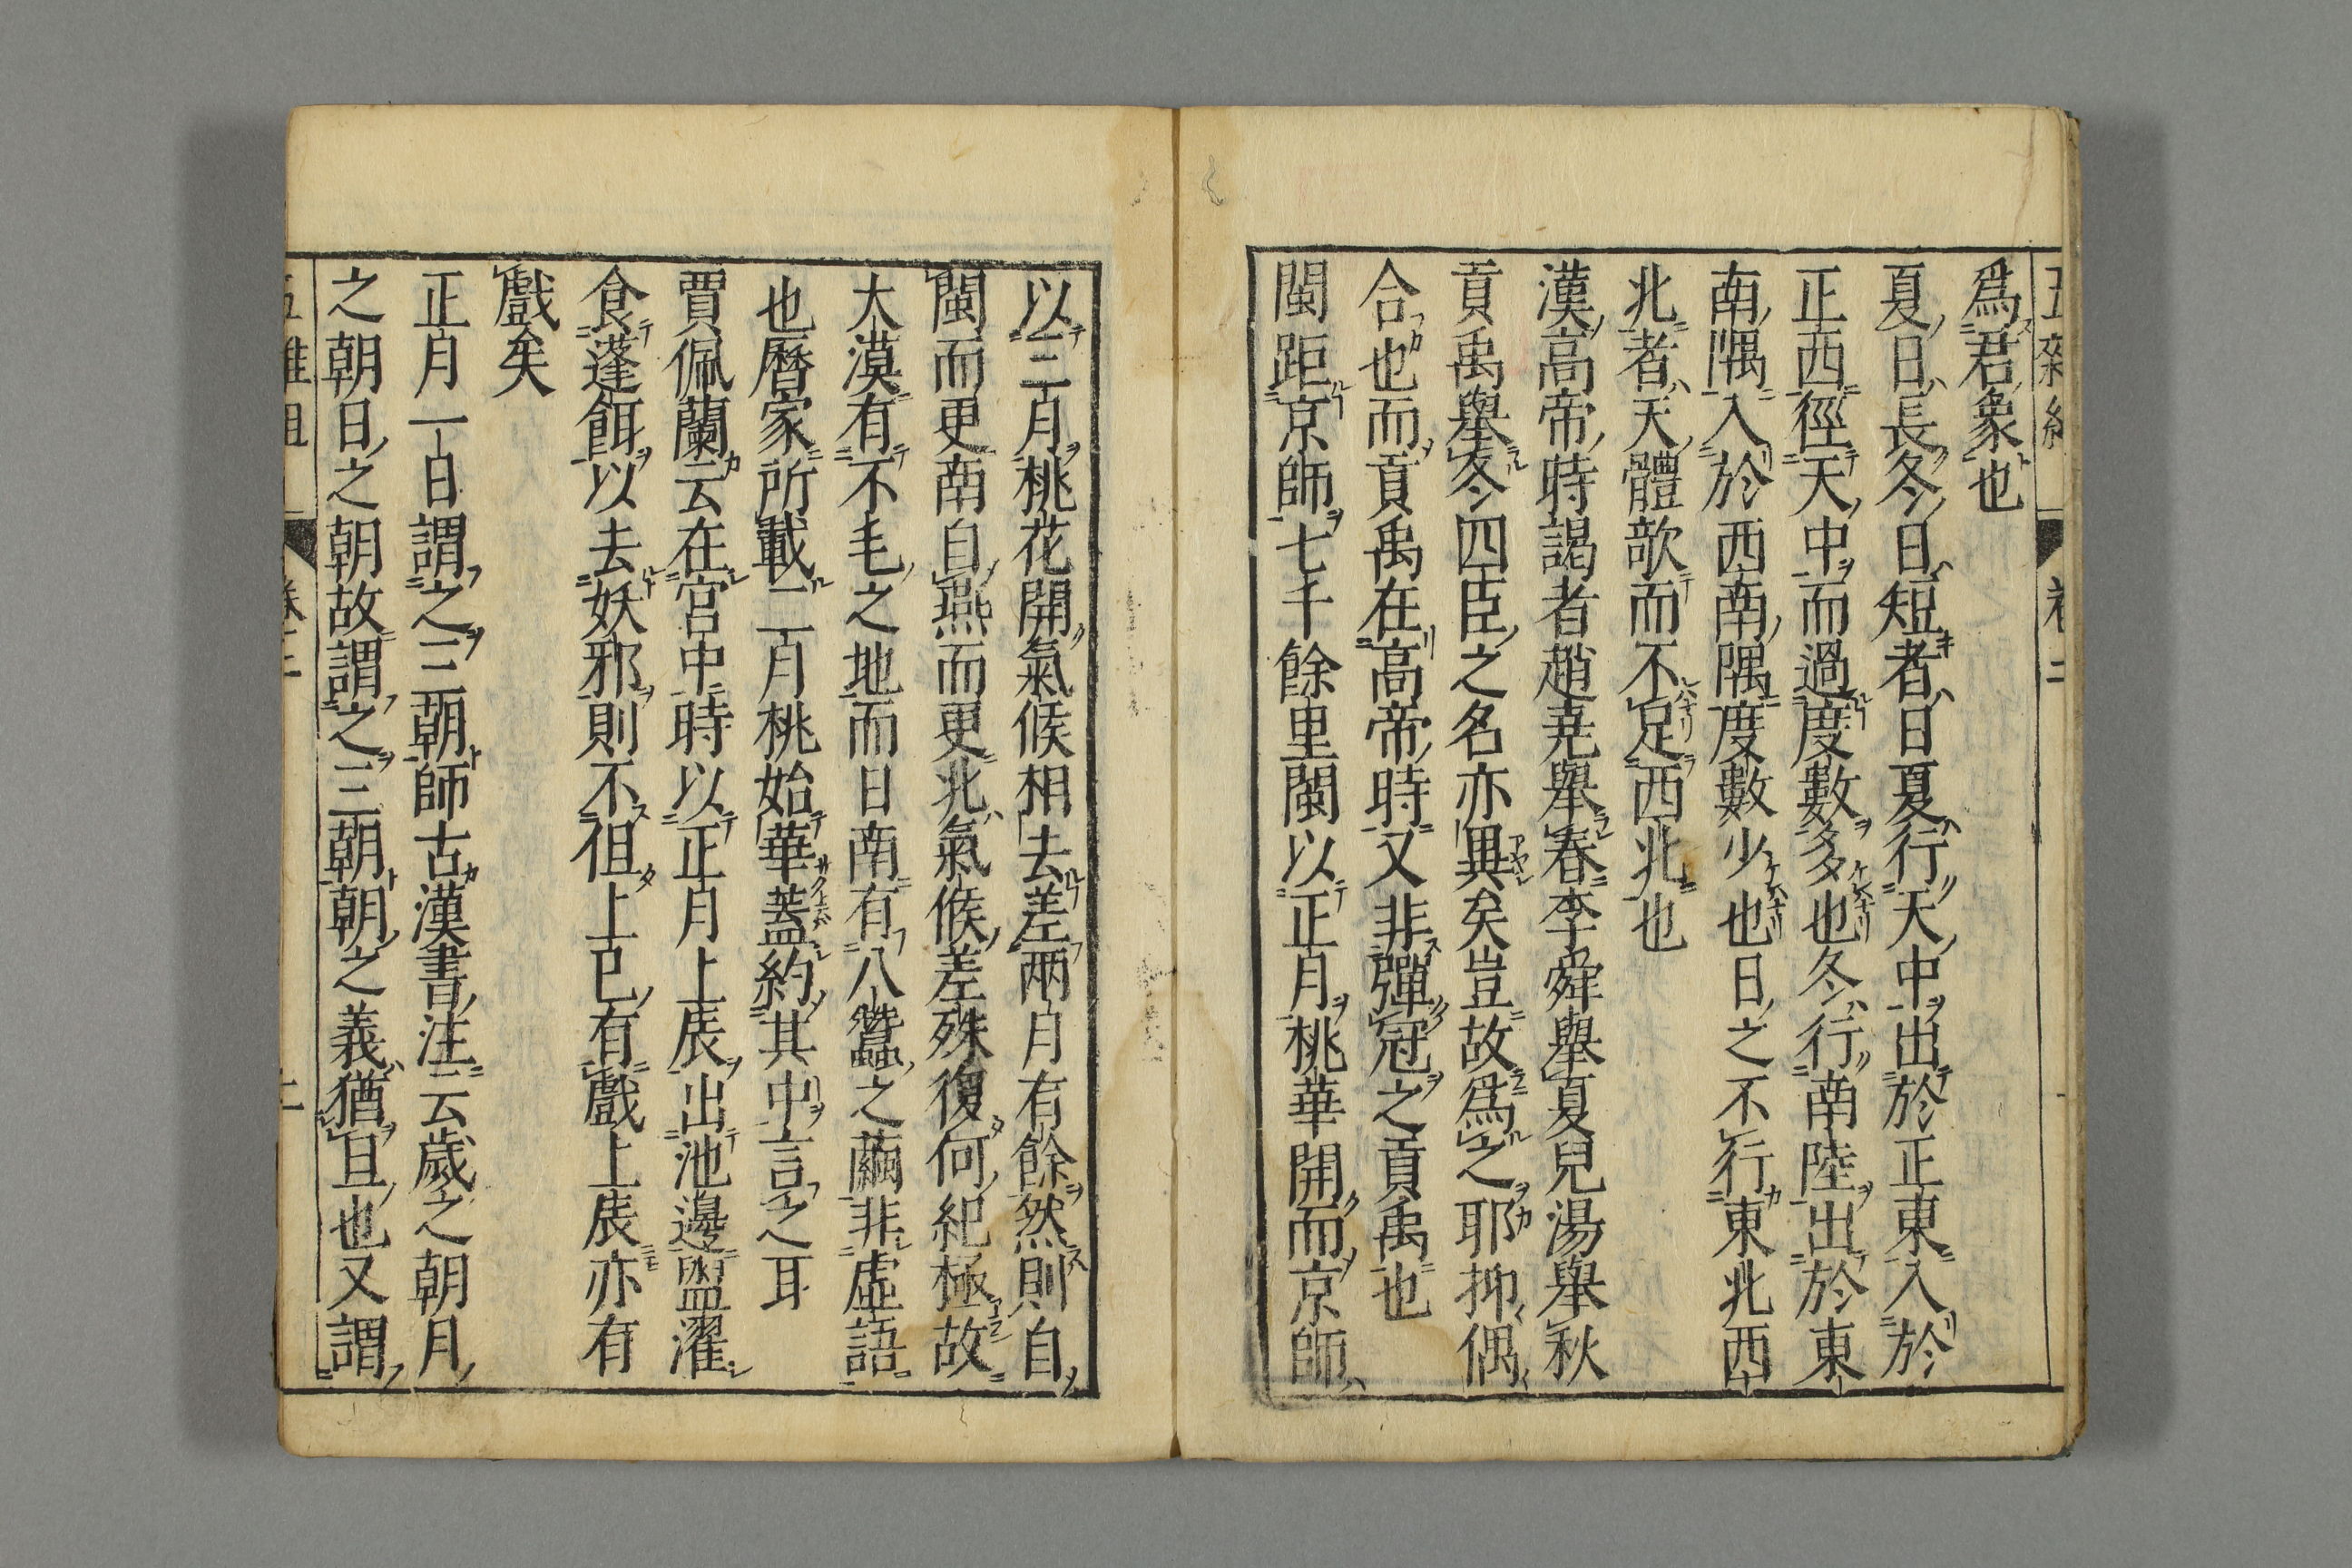 爲君象也
夏日長冬日短者日夏行天中出於正東入於
正西徑天中而過度數多也冬行南陸出於東
南隅入於西南隅度數少也日之不行東北西
北者天體欹而不足西北也
漢高帝時謁者趙堯舉春李舜舉夏兒湯舉秋
貢禹舉冬四臣之名亦異矣豈故爲之耶抑偶
合也而貢禹在高帝時又非彈冠之貢禹也
閩距京師七千餘里閩以正月桃華開而京師
以三月桃花開氣候相去差兩月有餘然則自
閩而更南自燕而更北氣候差殊復何紀極故
大漠有不毛之地而日南有八蠶之繭非虛語
也曆家所載二月桃始華蓋約其中言之耳
賈佩蘭云在宮中時以正月上辰出池邊盥濯
食蓬餌以去妖邪則不但上巳有戲上辰亦有
戲矣
正月一日謂之三朝師古漢書注云歲之朝月
之朝日之朝故謂之三朝朝之義猶旦也又謂
五雜組 卷二